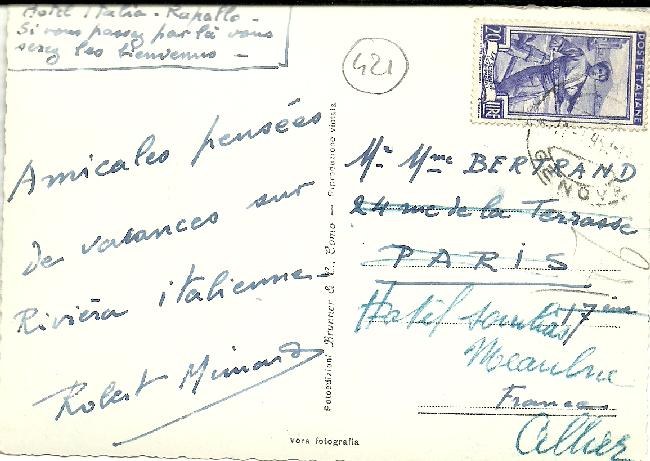 Hotel Italia - Rapallo -
Si vous passez par là vous
serez les bienvenus -
421
Amicales pensées
de vacances sur
Riviera italienne -
Robert
Fotoedizioni Brunner & C., Como - Riproduzione vietata
vera fotografia
20
LIRE
POSTE ITALIANE
GENOVA
Mr Mme BERTRAND
24 rue de la Terrasse
PARIS
17ème
Hotel
Meaulne
France
Allier